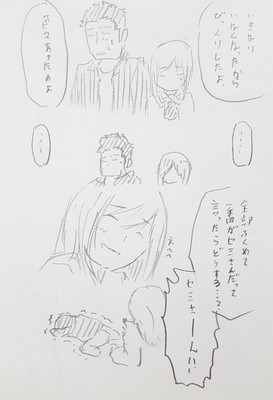 いきなり
いなくなったから
びっくりしたよ、
色々あったのよ
…
…
全部ふくめて
一番がセミさんだって
言ったらどうする…？
えへへ
セミさーーんい